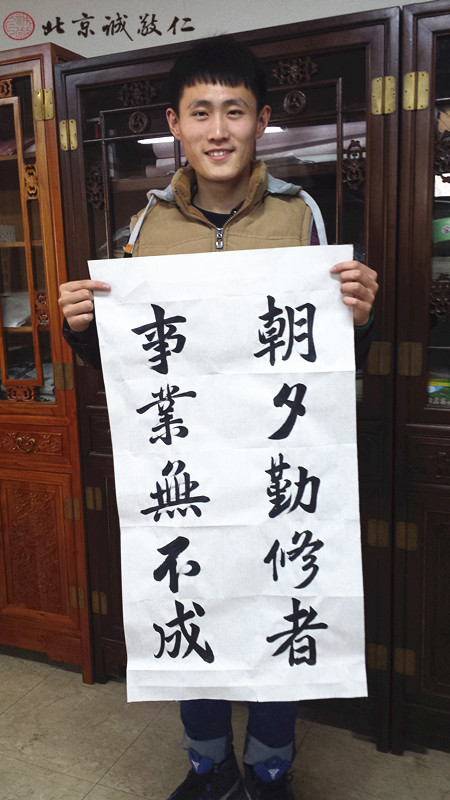 北京诚敬仁
朝夕勤修者
事業無不成